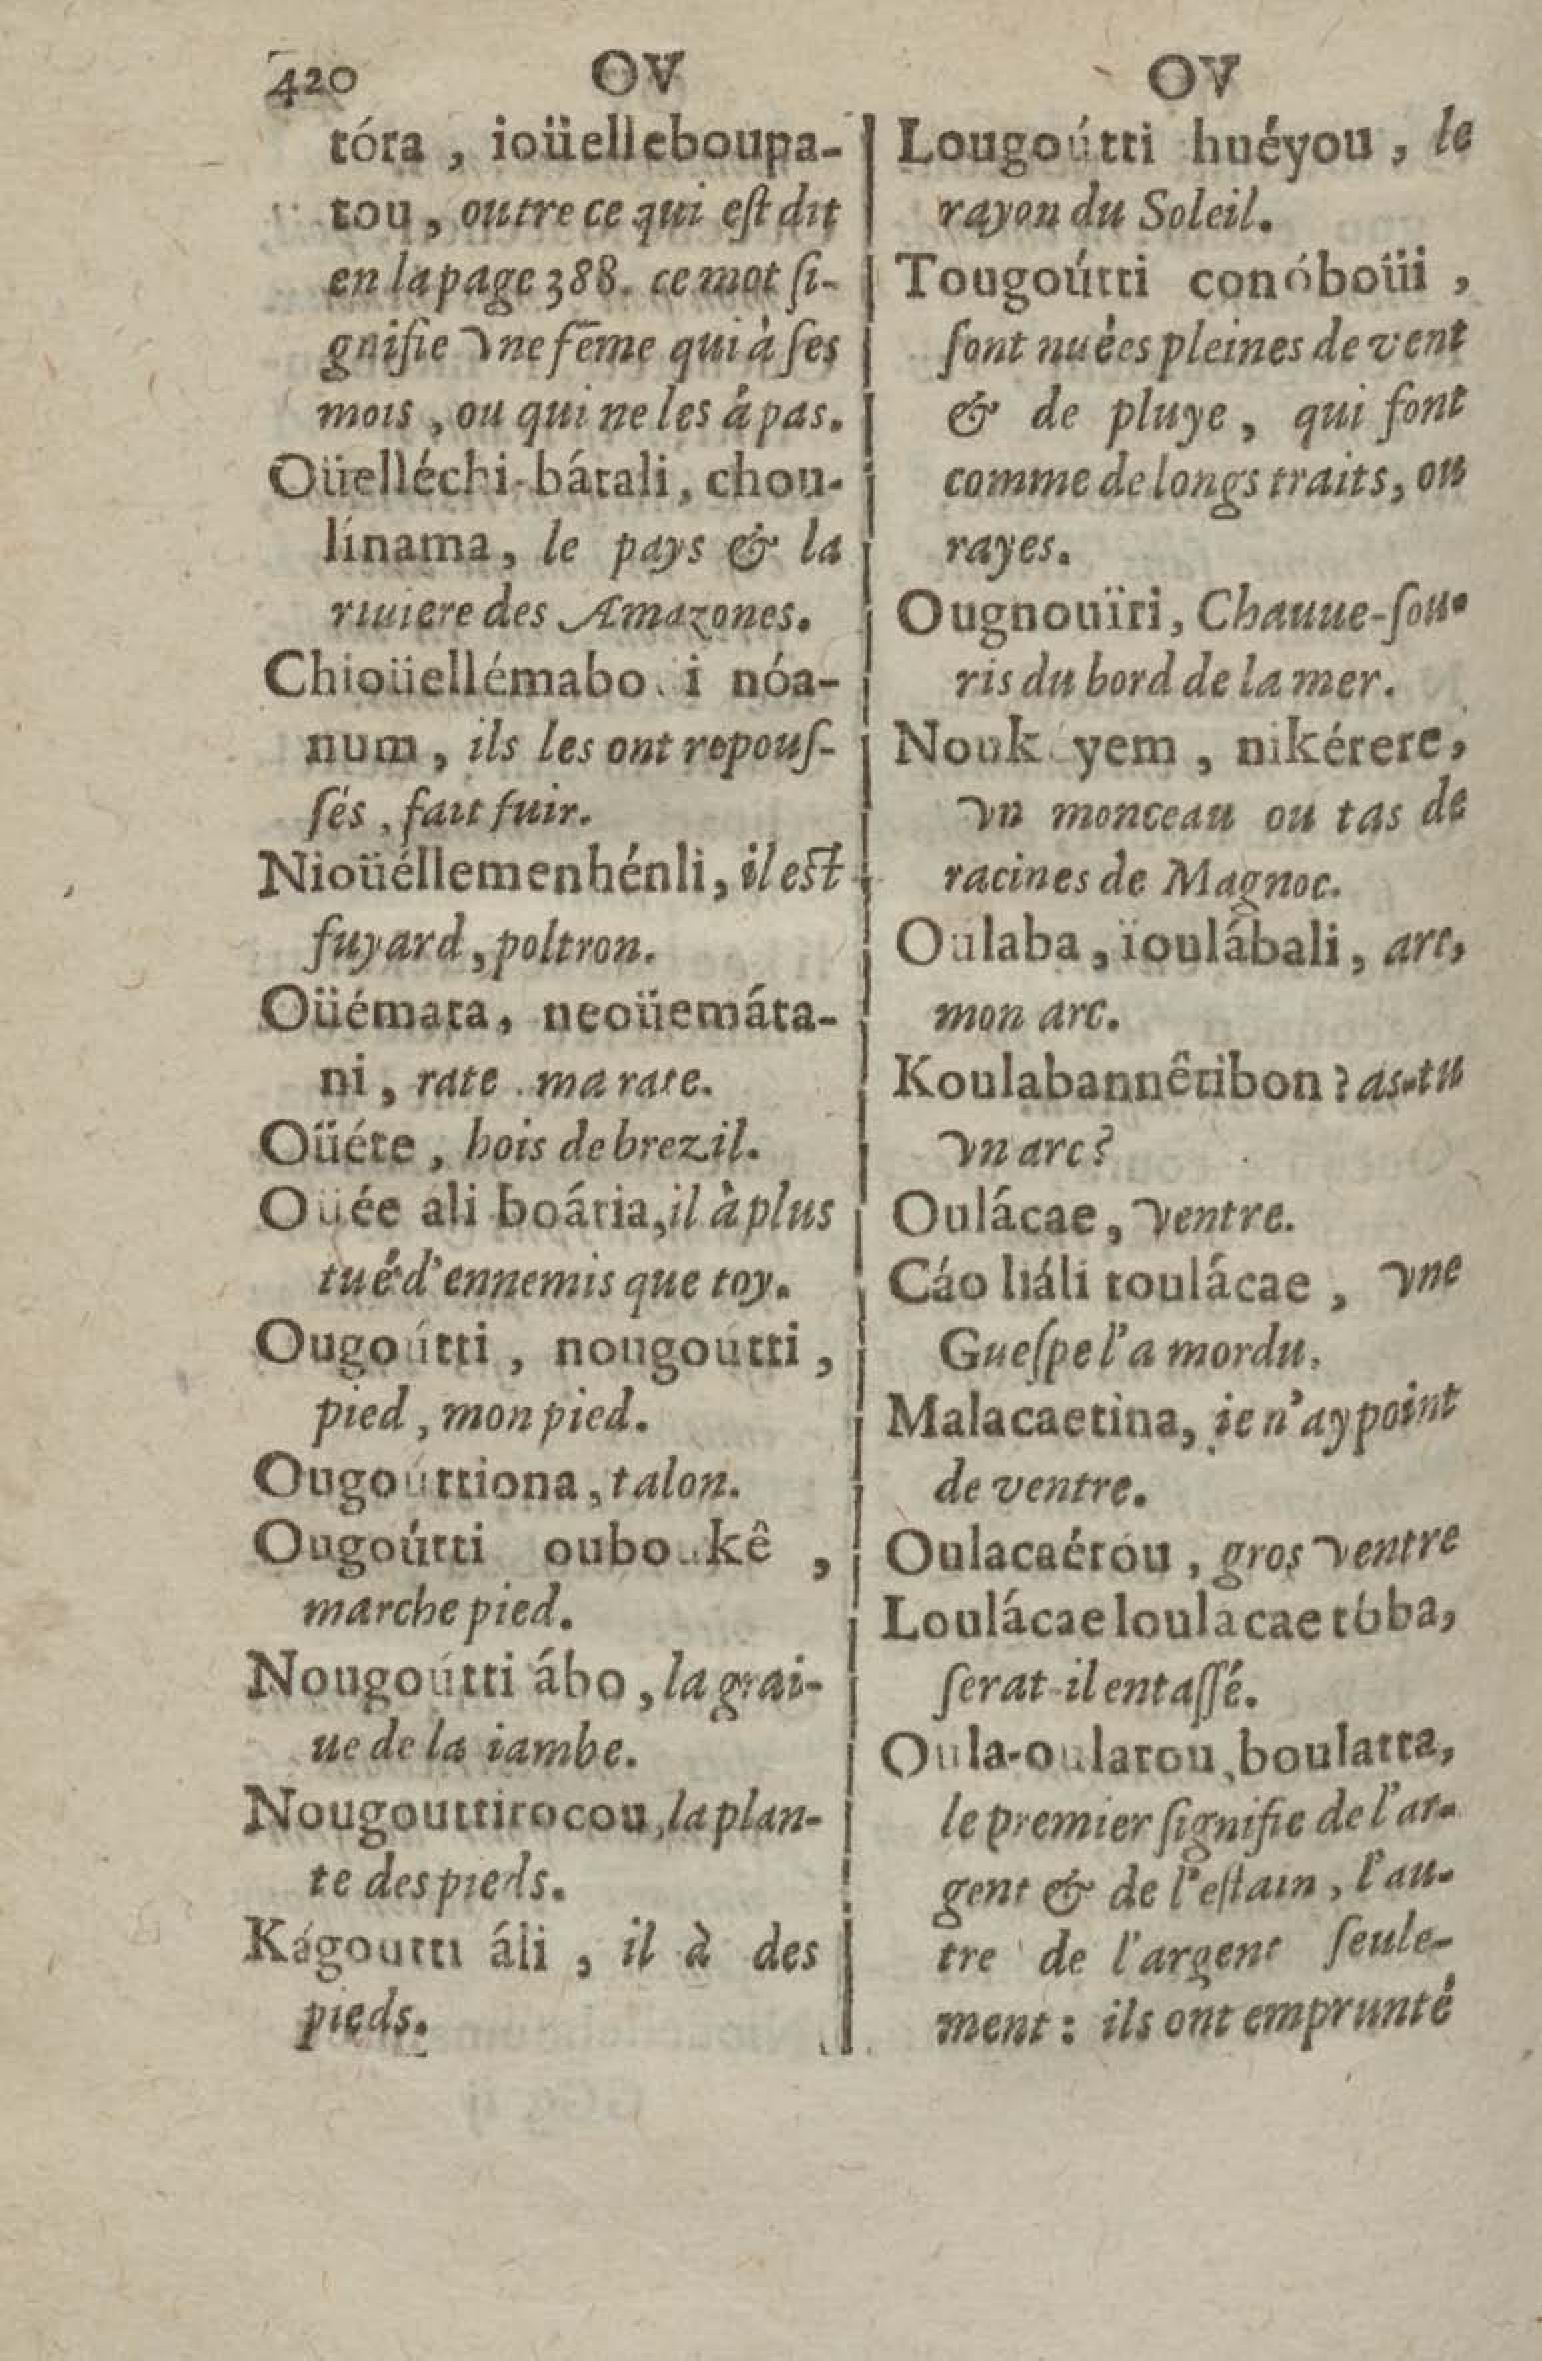 420 OV OV
tóra, ioüelleboupa-
tou, outre ce qui eſt dit
en la page 388. ce mot ſi-
gnifie vne fẽme qui à ſes
mois, ou qui ne les á pas.
Oüelléchi-bátali, chou-
línama, le pays & la
riuiere des Amazones.
Chioüellémabo i nóa-
num, ils les ont repouſ-
ſés, fait fuir.
Nioüéllemenhénli, il est
fuyard, poltron.
Oüémata, neoüemáta-
ni, rate ma rate.
Oüéte, bois de brezil.
Oüée áli boátia, il à plus
tué d'ennemis que toy.
Ougoútti, nougoútti,
pied, mon pied.
Ougoúttiona, talon.
Ougoútti oubo kê,
marche pied.
Nougoútti ábo, la grai-
ue de la iambe.
Nougouttirocou, la plan-
te des pieds.
Kágoutti áli, il à des
pieds.
Lougoútti huéyou, le
rayon du Soleil.
Tougoútti conóboüi,
ſont nuées pleines de vent
& de pluye, qui font
comme de longs traits, ou
rayes.
Ougnouïri, Chauue-ſou-
ris du bord de la mer.
Nouk yem, nikérere,
vn monceau ou tas de
racines de Magnoc.
Oulaba, ïoulábali, arc,
mon arc.
Koulabannêtibon? as-tu
vn arc?
Oulácae, ventre.
Cáo liáli toulácae, vne
Gueſpe l'a mordu.
Malacaetina, ie n'ay point
de ventre.
Oulacaérou, gros ventre
Loulácae loulacae tóba,
ſerat-il entaſſé.
Oula-oulatou, boulatta,
le premier ſignifie de l'ar-
gent & de l'eſtain, l'au-
tre de l'argent ſeule-
ment: ils ont emprunté